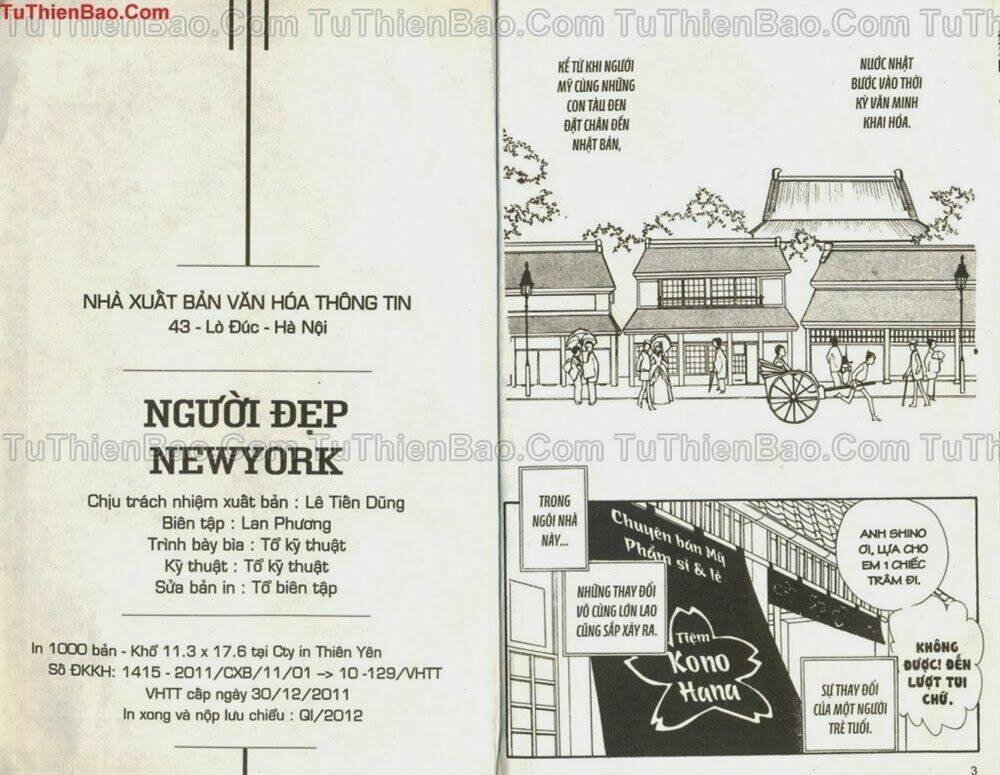 TuThienBao.Com
TuThienBao.Com TuThienBao.Com TuThienBao.Com TuThie
NHÀ XUẤT BẢN VĂN HÓA THÔNG TIN
43 - Lò Đúc - Hà Nội
NGƯỜI ĐẸP
NEWYORK
TuThienBao.Com TuThienBao.Com TuThienBao.Com TuThie
Chịu trách nhiệm xuất bản : Lê Tiền Dũng
Biên tập : Lan Phương
Trình bày bìa : Tổ kỹ thuật
Kỹ thuật : Tổ kỹ thuật
Sửa bản in : Tổ biên tập
In 1000 bản - Khổ 11.3 x 17.6 tại Cty in Thiên Yên
Số ĐKKH: 1415 - 2011/CXB/11/01 –> 10 -129/VHTT
VHTT cấp ngày 30/12/2011
In xong và nộp lưu chiểu : QI/2012
NƯỚC NHẬT
BƯỚC VÀO THỜI
KỲ VĂN MINH
KHAI HÓA.
KỂ TỪ KHI NGƯỜI
MỸ CÙNG NHỮNG
CON TÀU ĐEN
ĐẶT CHÂN ĐẾN
NHẬT BẢN,
TRONG
NGÔI NHÀ
NÀY...
Chuyên bán Mỹ
Phẩm sỉ & lẻ
ANH SHINO
ƠI, LỰA CHO
EM 1 CHIẾC
TRÂM ĐI.
NHỮNG THAY ĐỔI
VÔ CÙNG LỚN LAO
CŨNG SẮP XẢY RA.
Tiệm
Kono
Hana
KHÔNG
ĐƯỢC! ĐẾN
LƯỢT TUI
CHỨ.
SỰ THAY ĐỔI
CỦA MỘT NGƯỜI
TRẺ TUỔI.
3